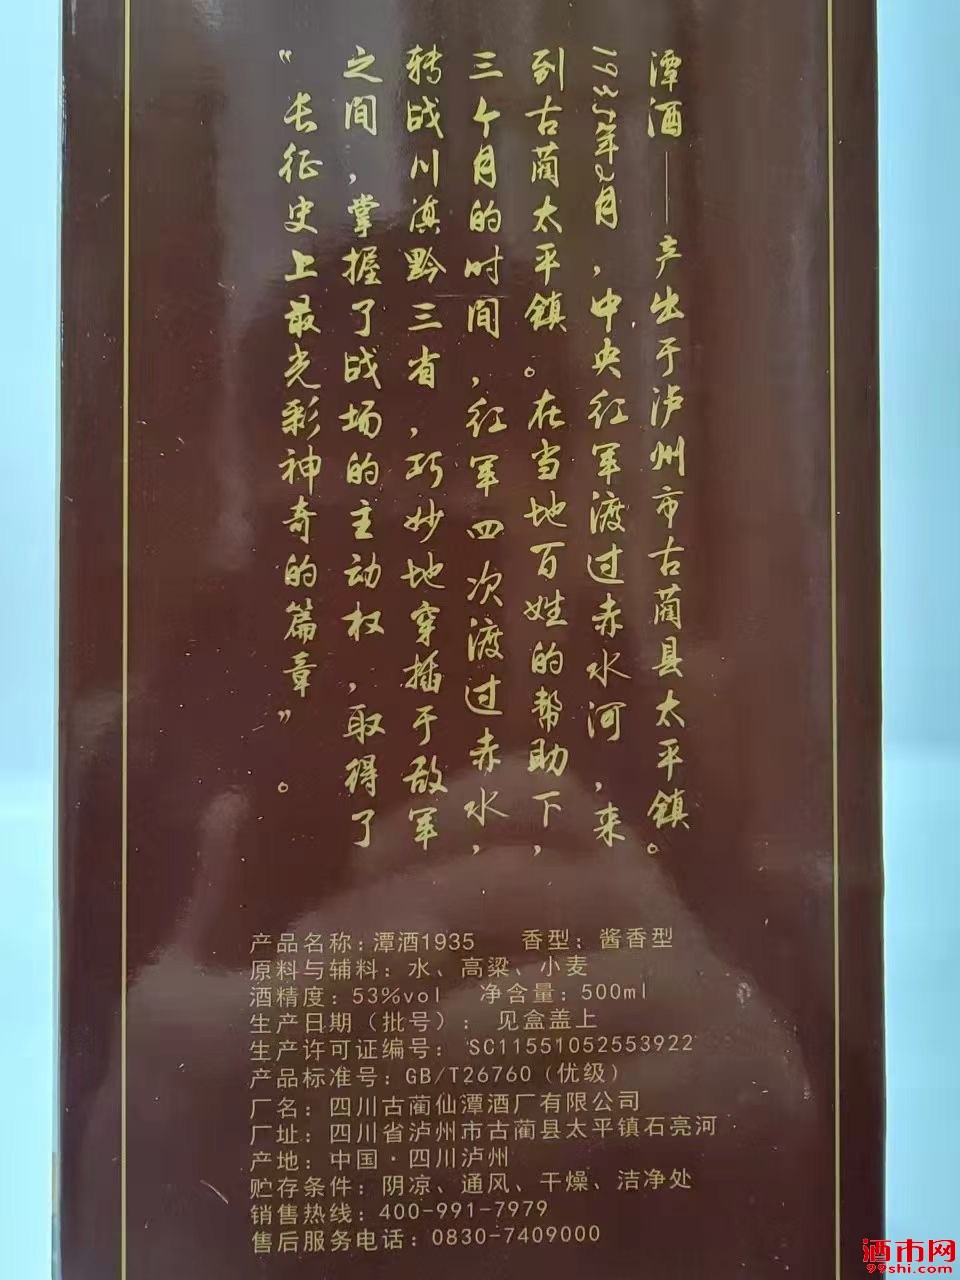 潭酒——产出于泸州市古蔺县太平镇。
1935年2月，中央红军渡过赤水河，来
到古蔺太平镇。在当地百姓的帮助下，
三个月的时间，红军四次渡过赤水，
转战川滇黔三省，巧妙地穿插于敌军
之间，掌握了战场的主动权，取得了
“长征史上最光彩神奇的篇章”。
产品名称：潭酒1935 香型：酱香型
原料与辅料：水、高粱、小麦
酒精度：53%vol 净含量：500ml
生产日期（批号）： 见盒盖上
生产许可证编号： SC11551052553922
产品标准号：GB/T26760（优级）
厂名：四川古蔺仙潭酒厂有限公司
厂址：四川省泸州市古蔺县太平镇石亮河
产地：中国·四川泸州
贮存条件：阴凉、通风、干燥、洁净处
销售热线：400-991-7979
售后服务电话：0830-7409000
酒市网
99shi.com